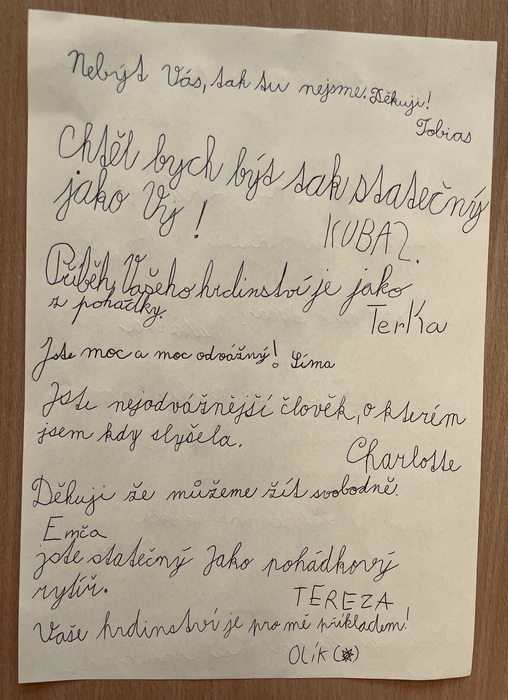 Nebýt Vás, tak tu nejsme. Děkuji!
Tobias
Chtěl bych být tak statečný
jako Vy!
KUBA Z.
Příběh Vašeho hrdinství je jako
z pohádky.
Terka
Jste moc a moc odvážný! Síma
Jste nejodvážnější člověk, o kterém
jsem kdy slyšela.
Charlotte
Děkuji že můžeme žít svobodně.
Emča
jste statečný Jako pohádkový
rytíř.
TEREZA
Vaše hrdinství je pro mě příkladem!
OLÍK (